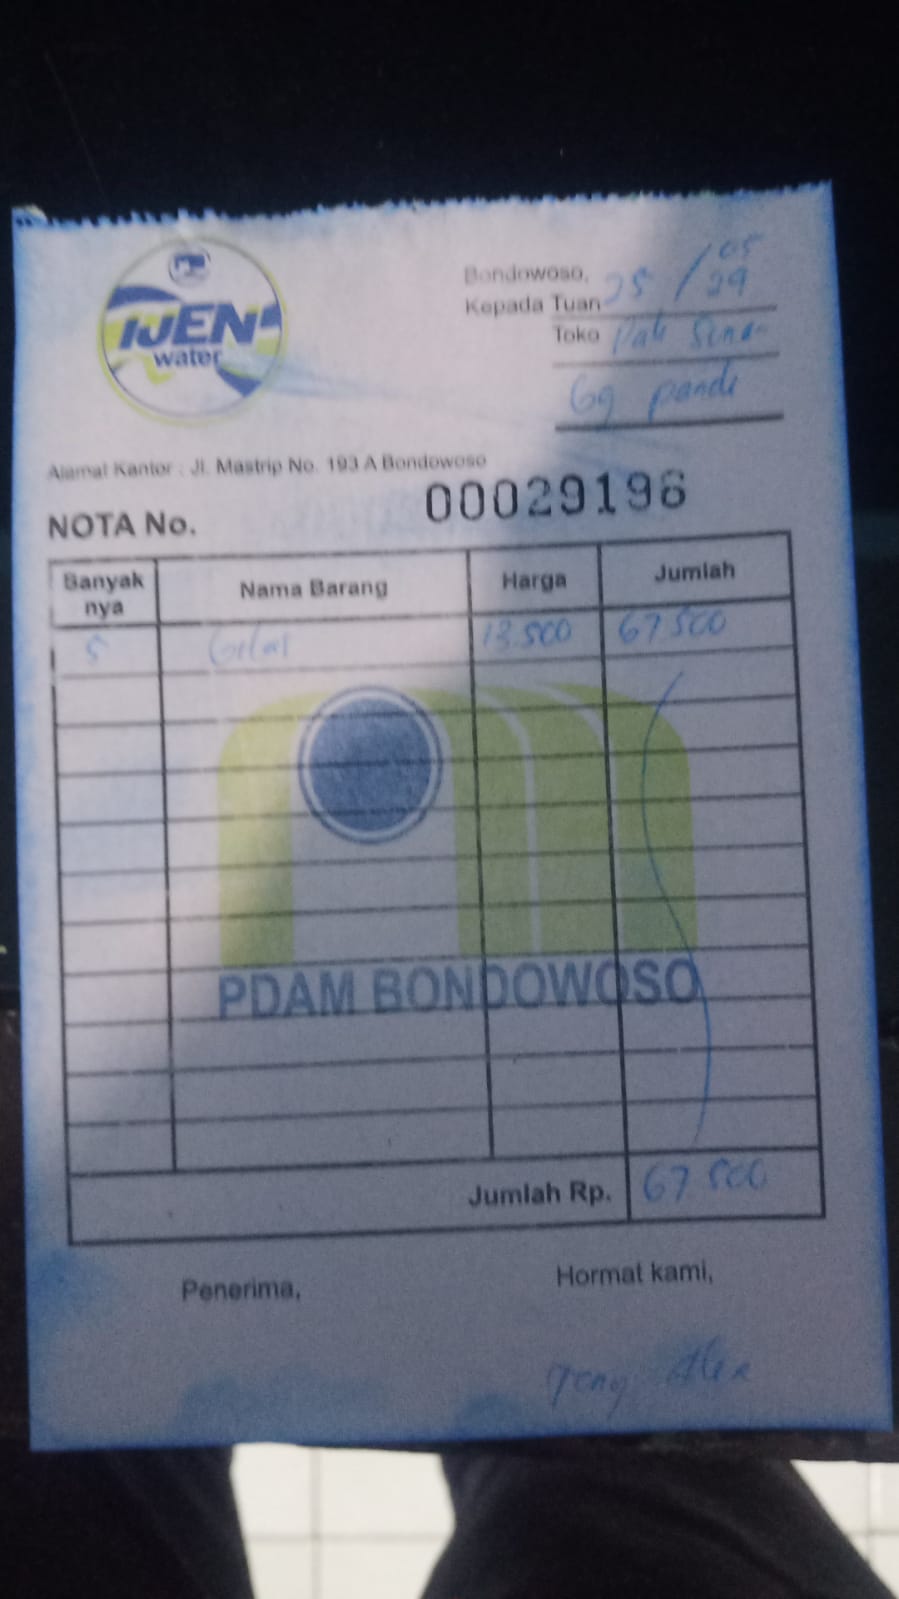 IJEN
water
Bondowoso, 25 / 05
Kepada Tuan 24
Toko Pak
Gg pande
Alamat Kantor : Jl. Mastrip No. 193 A Bondowoso
NOTA No. 00029196
Banyak nya Nama Barang Harga Jumlah
5 Gelas 13.500 67 500
PDAM BONDOWOSO
Jumlah Rp. 67 500
Penerima, Hormat kami,